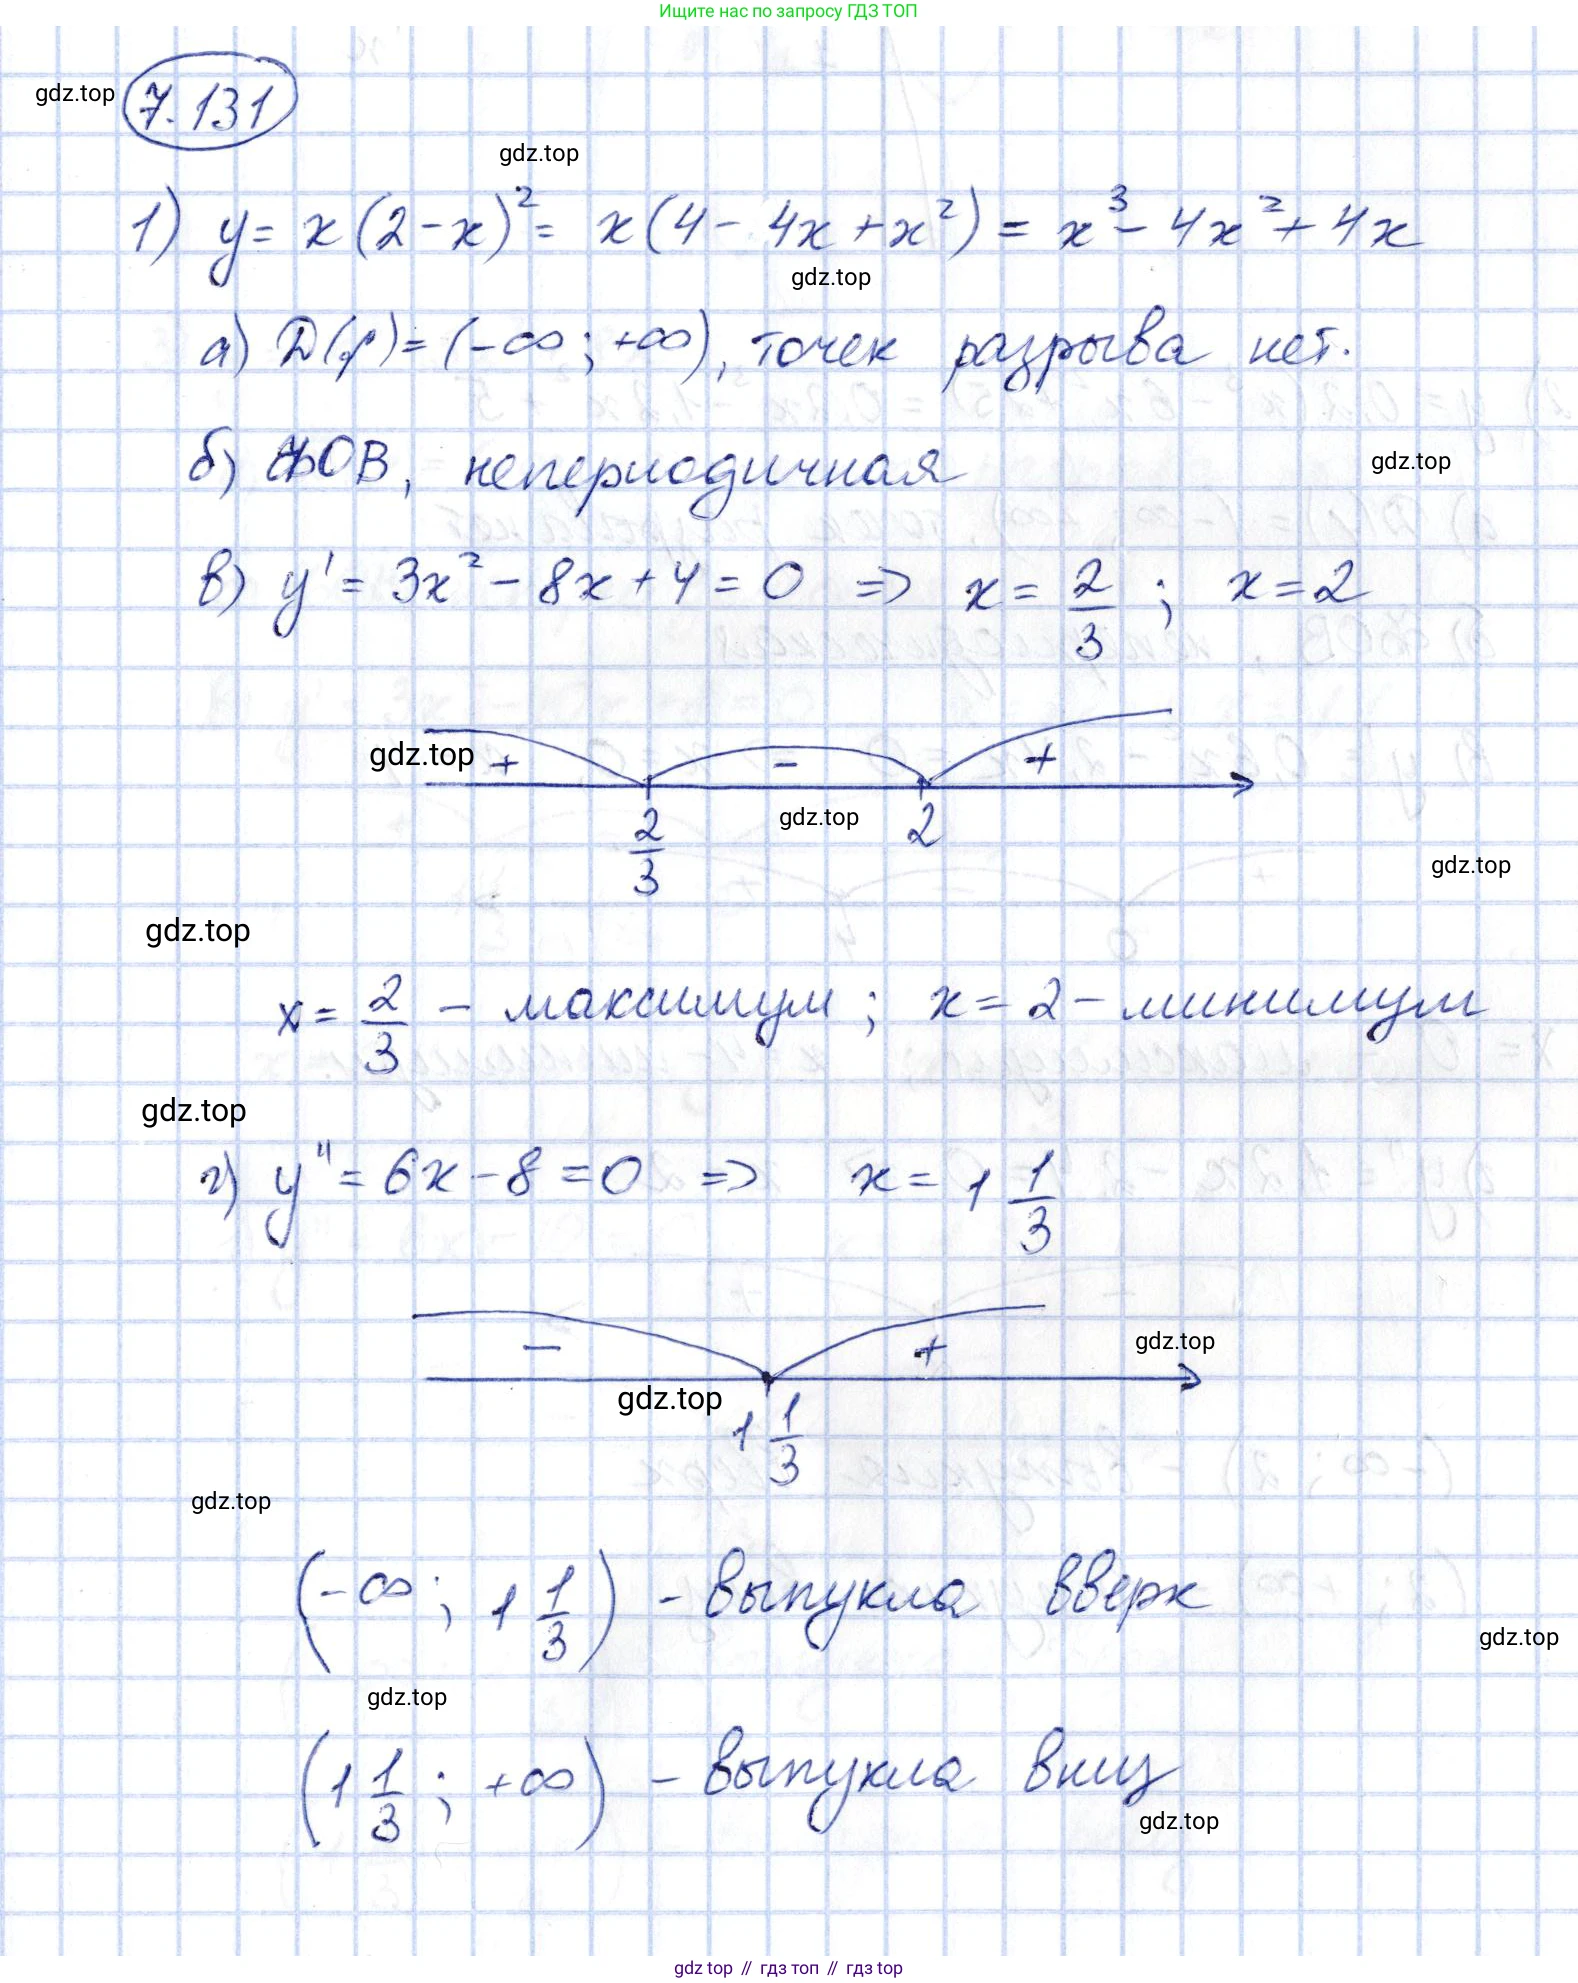 Ищите нас по запросу ГДЗ ТОП
gdz.top
7.131
gdz.top
1) y = x(2-x)² = x(4 - 4x + x²) = x³ - 4x² + 4x
gdz.top
а) D(f) = (-∞; +∞), точек разрыва нет.
б) ФОВ, непериодичная
gdz.top
в) y' = 3x² - 8x + 4 = 0 => x = 2/3 ; x = 2
gdz.top + - +
2/3 gdz.top 2
gdz.top
gdz.top
x = 2/3 - максимум ; x = 2 - минимум
gdz.top
г) y'' = 6x - 8 = 0 => x = 1 1/3
- + gdz.top
gdz.top
1 1/3
gdz.top
(-∞; 1 1/3) - выпукла вверх
gdz.top
gdz.top
(1 1/3 ; +∞) - выпукла вниз
gdz.top
gdz top // гдз топ // гдз top